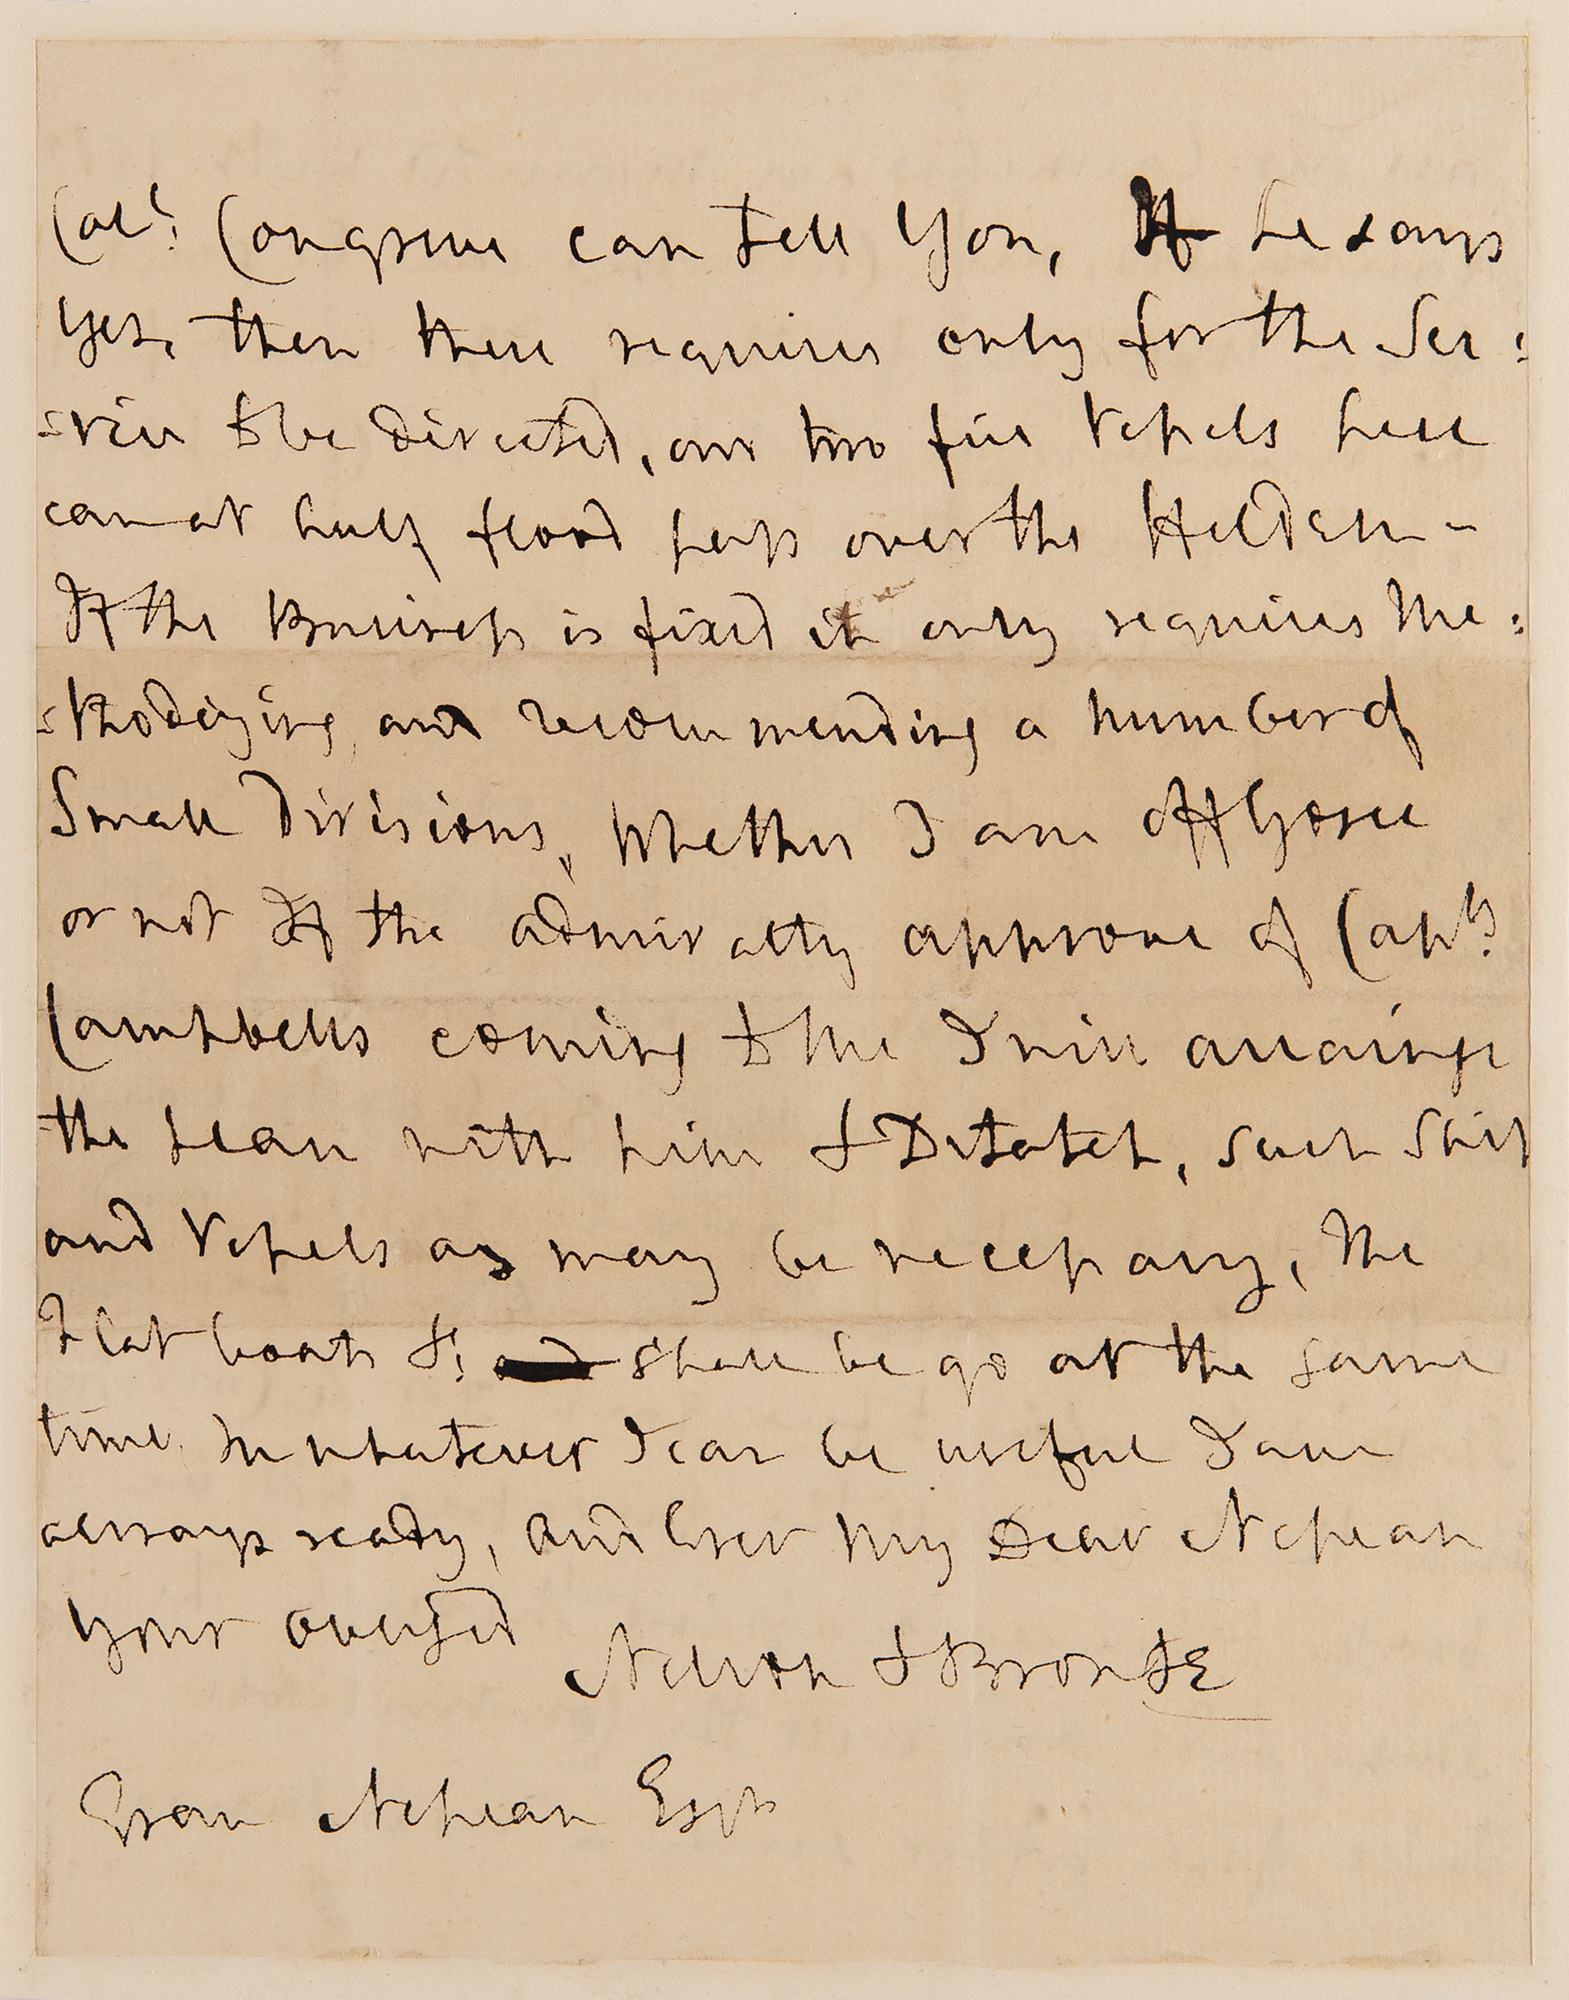 Coll: Congreve can tell You, If he says
Yes, then there requires only for the Ser:
:vice to be directed, our two fire Vessels here
can at half flood pass over the Hilders -
If the Business is fixed it only requires Me:
:thodizing, and recommending a number of
Small Divisions, Whether I am off Goree
or not If the admiralty approve of Capt:
Campbells coming to Me I will arrainge
the plan with him & Dispatch, such Ships
and Vessels as may be necessary, The
Flat boats &c: shall be go at the same
time. In whatever I can be useful I am
always ready, and Ever My Dear Nepean
Your obliged Nelson & Bronte
Evan Nepean Esqr